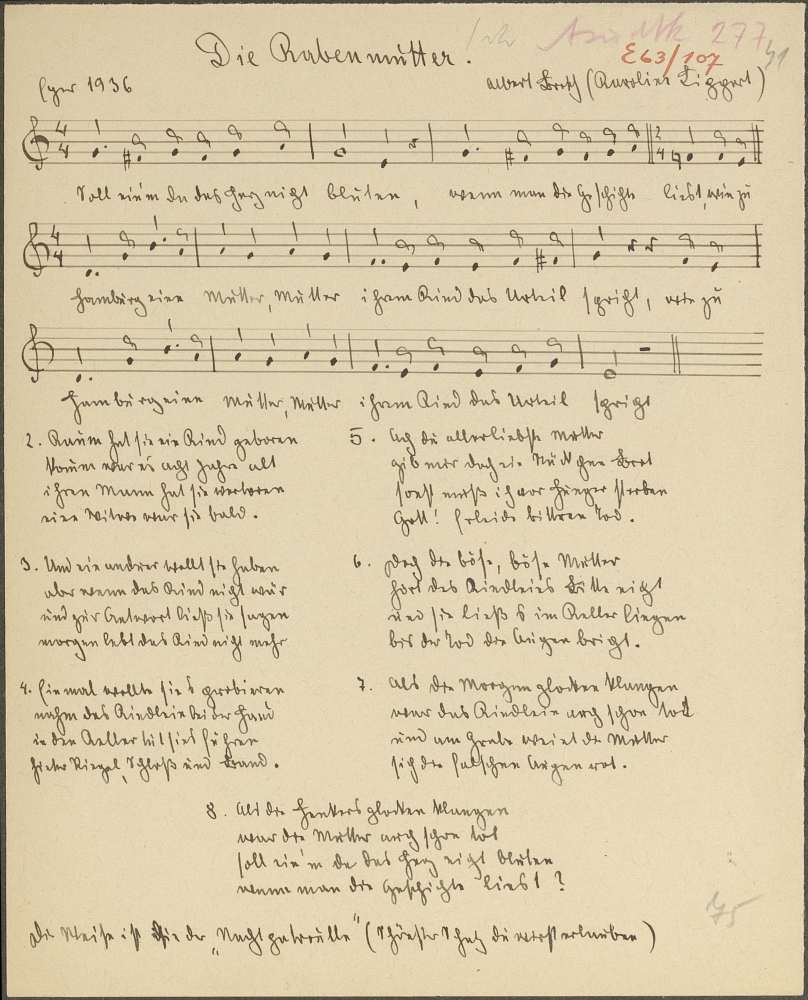 277
Die Rabenmutter.
E63/107
Eger 1936
Albert Brosch (Karoline Lippert)
Soll einem da das Herz nicht bluten, wenn man die Geschichte liest, wie zu
Hamburg eine Mutter, Mutter ihrem Kind das Urteil spricht, wie zu
Hamburg eine Mutter, Mutter ihrem Kind das Urteil spricht
2. Kaum hat sie ein Kind geboren
kaum war es acht Jahre alt
ihren Mann hat sie verloren
eine Witwe war sie bald.
3. Und ein andrer wollt sie haben
aber wenn das Kind nicht wär
und zur Antwort ließ sie sagen
morgen lebt das Kind nicht mehr
4. Einmal wollte sie's probieren
nahm das Kindlein bei der Hand
in den Keller tut sie's führen
hinter Riegel, Schloß und Band.
5. Ach du allerliebste Mutter
gib mir doch ein Stückchen Brot
sonst muß ich vor Hunger sterben
Gott! Erleide bittren Tod.
6. Doch die böse, böse Mutter
hört des Kindleins Bitte nicht
und sie ließ's im Keller liegen
bis der Tod die Augen bricht.
7. Als die Morgenglocken klangen
war das Kindlein auch schon tot
und am Grabe weint die Mutter
sich die falschen Augen rot.
8. Als die Henkersglocken klangen
war die Mutter auch schon tot
soll ein'm da das Herz nicht bluten
wenn man die Geschichte liest?
75
Die Weise ist die der "Nachtpatroulle" (Schönster Schatz du wirst erlauben)